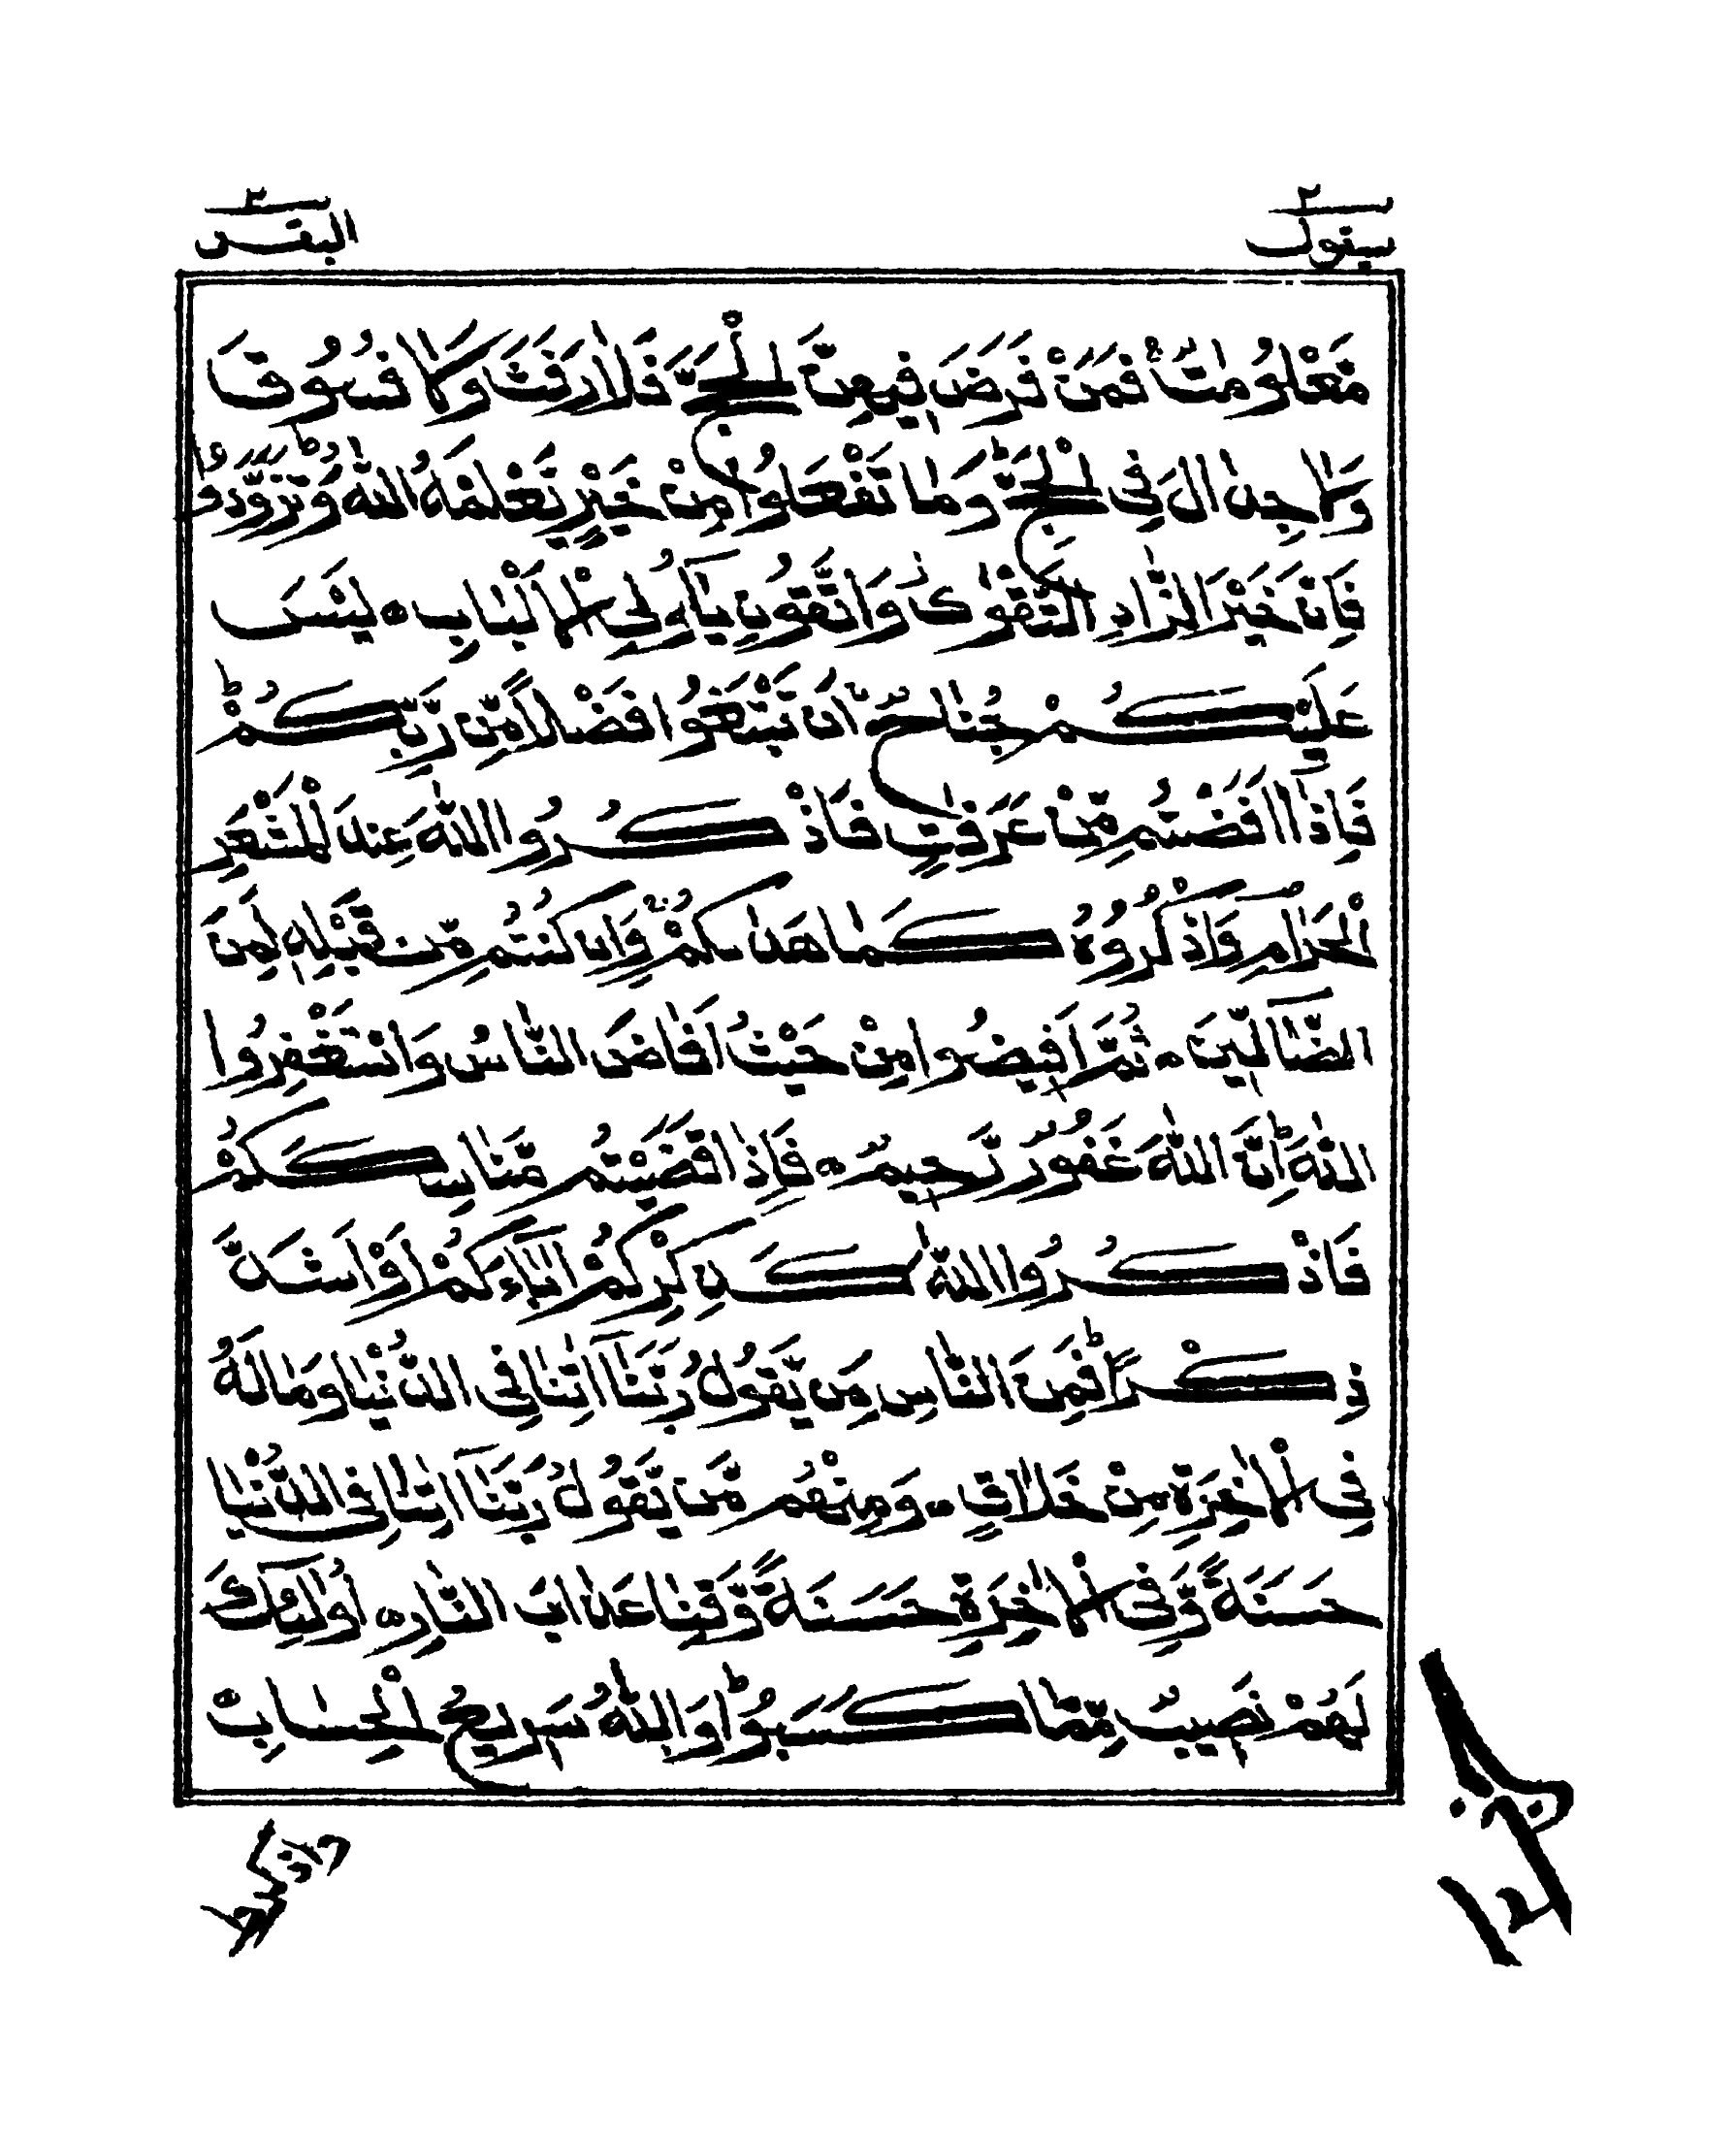 سيقول ٢
البقرة ٢
مَّعْلُومٰتٌ ۚ فَمَنْ فَرَضَ فِيهِنَّ الْحَجَّ فَلَا رَفَثَ وَلَا فُسُوقَ
وَلَا جِدَالَ فِي الْحَجِّ ؕ وَمَا تَفْعَلُوا مِنْ خَيْرٍ يَّعْلَمْهُ اللّٰهُ ؕ وَتَزَوَّدُوا
فَاِنَّ خَيْرَ الزَّادِ التَّقْوٰى وَاتَّقُونِ يٰٓاُولِي الْاَلْبَابِ ه لَيْسَ
عَلَيْكُمْ جُنَاحٌ اَنْ تَبْتَغُوا فَضْلًا مِّنْ رَّبِّكُمْ ؕ
فَاِذَآ اَفَضْتُمْ مِّنْ عَرَفٰتٍ فَاذْكُرُوا اللّٰهَ عِنْدَ الْمَشْعَرِ
الْحَرَامِ وَاذْكُرُوهُ كَمَا هَدٰىكُمْ ۚ وَاِنْ كُنْتُمْ مِّنْ قَبْلِهٖ لَمِنَ
الضَّآلِّينَ ه ثُمَّ اَفِيضُوا مِنْ حَيْثُ اَفَاضَ النَّاسُ وَاسْتَغْفِرُوا
اللّٰهَ ؕ اِنَّ اللّٰهَ غَفُورٌ رَّحِيمٌ ه فَاِذَا قَضَيْتُمْ مَّنَاسِكَكُمْ
فَاذْكُرُوا اللّٰهَ كَذِكْرِكُمْ اٰبَآءَكُمْ اَوْ اَشَدَّ
ذِكْرًا ؕ فَمِنَ النَّاسِ مَنْ يَّقُولُ رَبَّنَآ اٰتِنَا فِي الدُّنْيَا وَمَا لَهُ
فِي الْاٰخِرَةِ مِنْ خَلَاقٍ ه وَمِنْهُمْ مَّنْ يَّقُولُ رَبَّنَآ اٰتِنَا فِي الدُّنْيَا
حَسَنَةً وَّفِي الْاٰخِرَةِ حَسَنَةً وَّقِنَا عَذَابَ النَّارِ ه اُولٰٓئِكَ
لَهُمْ نَصِيبٌ مِّمَّا كَسَبُوا ؕ وَاللّٰهُ سَرِيعُ الْحِسَابِ ه